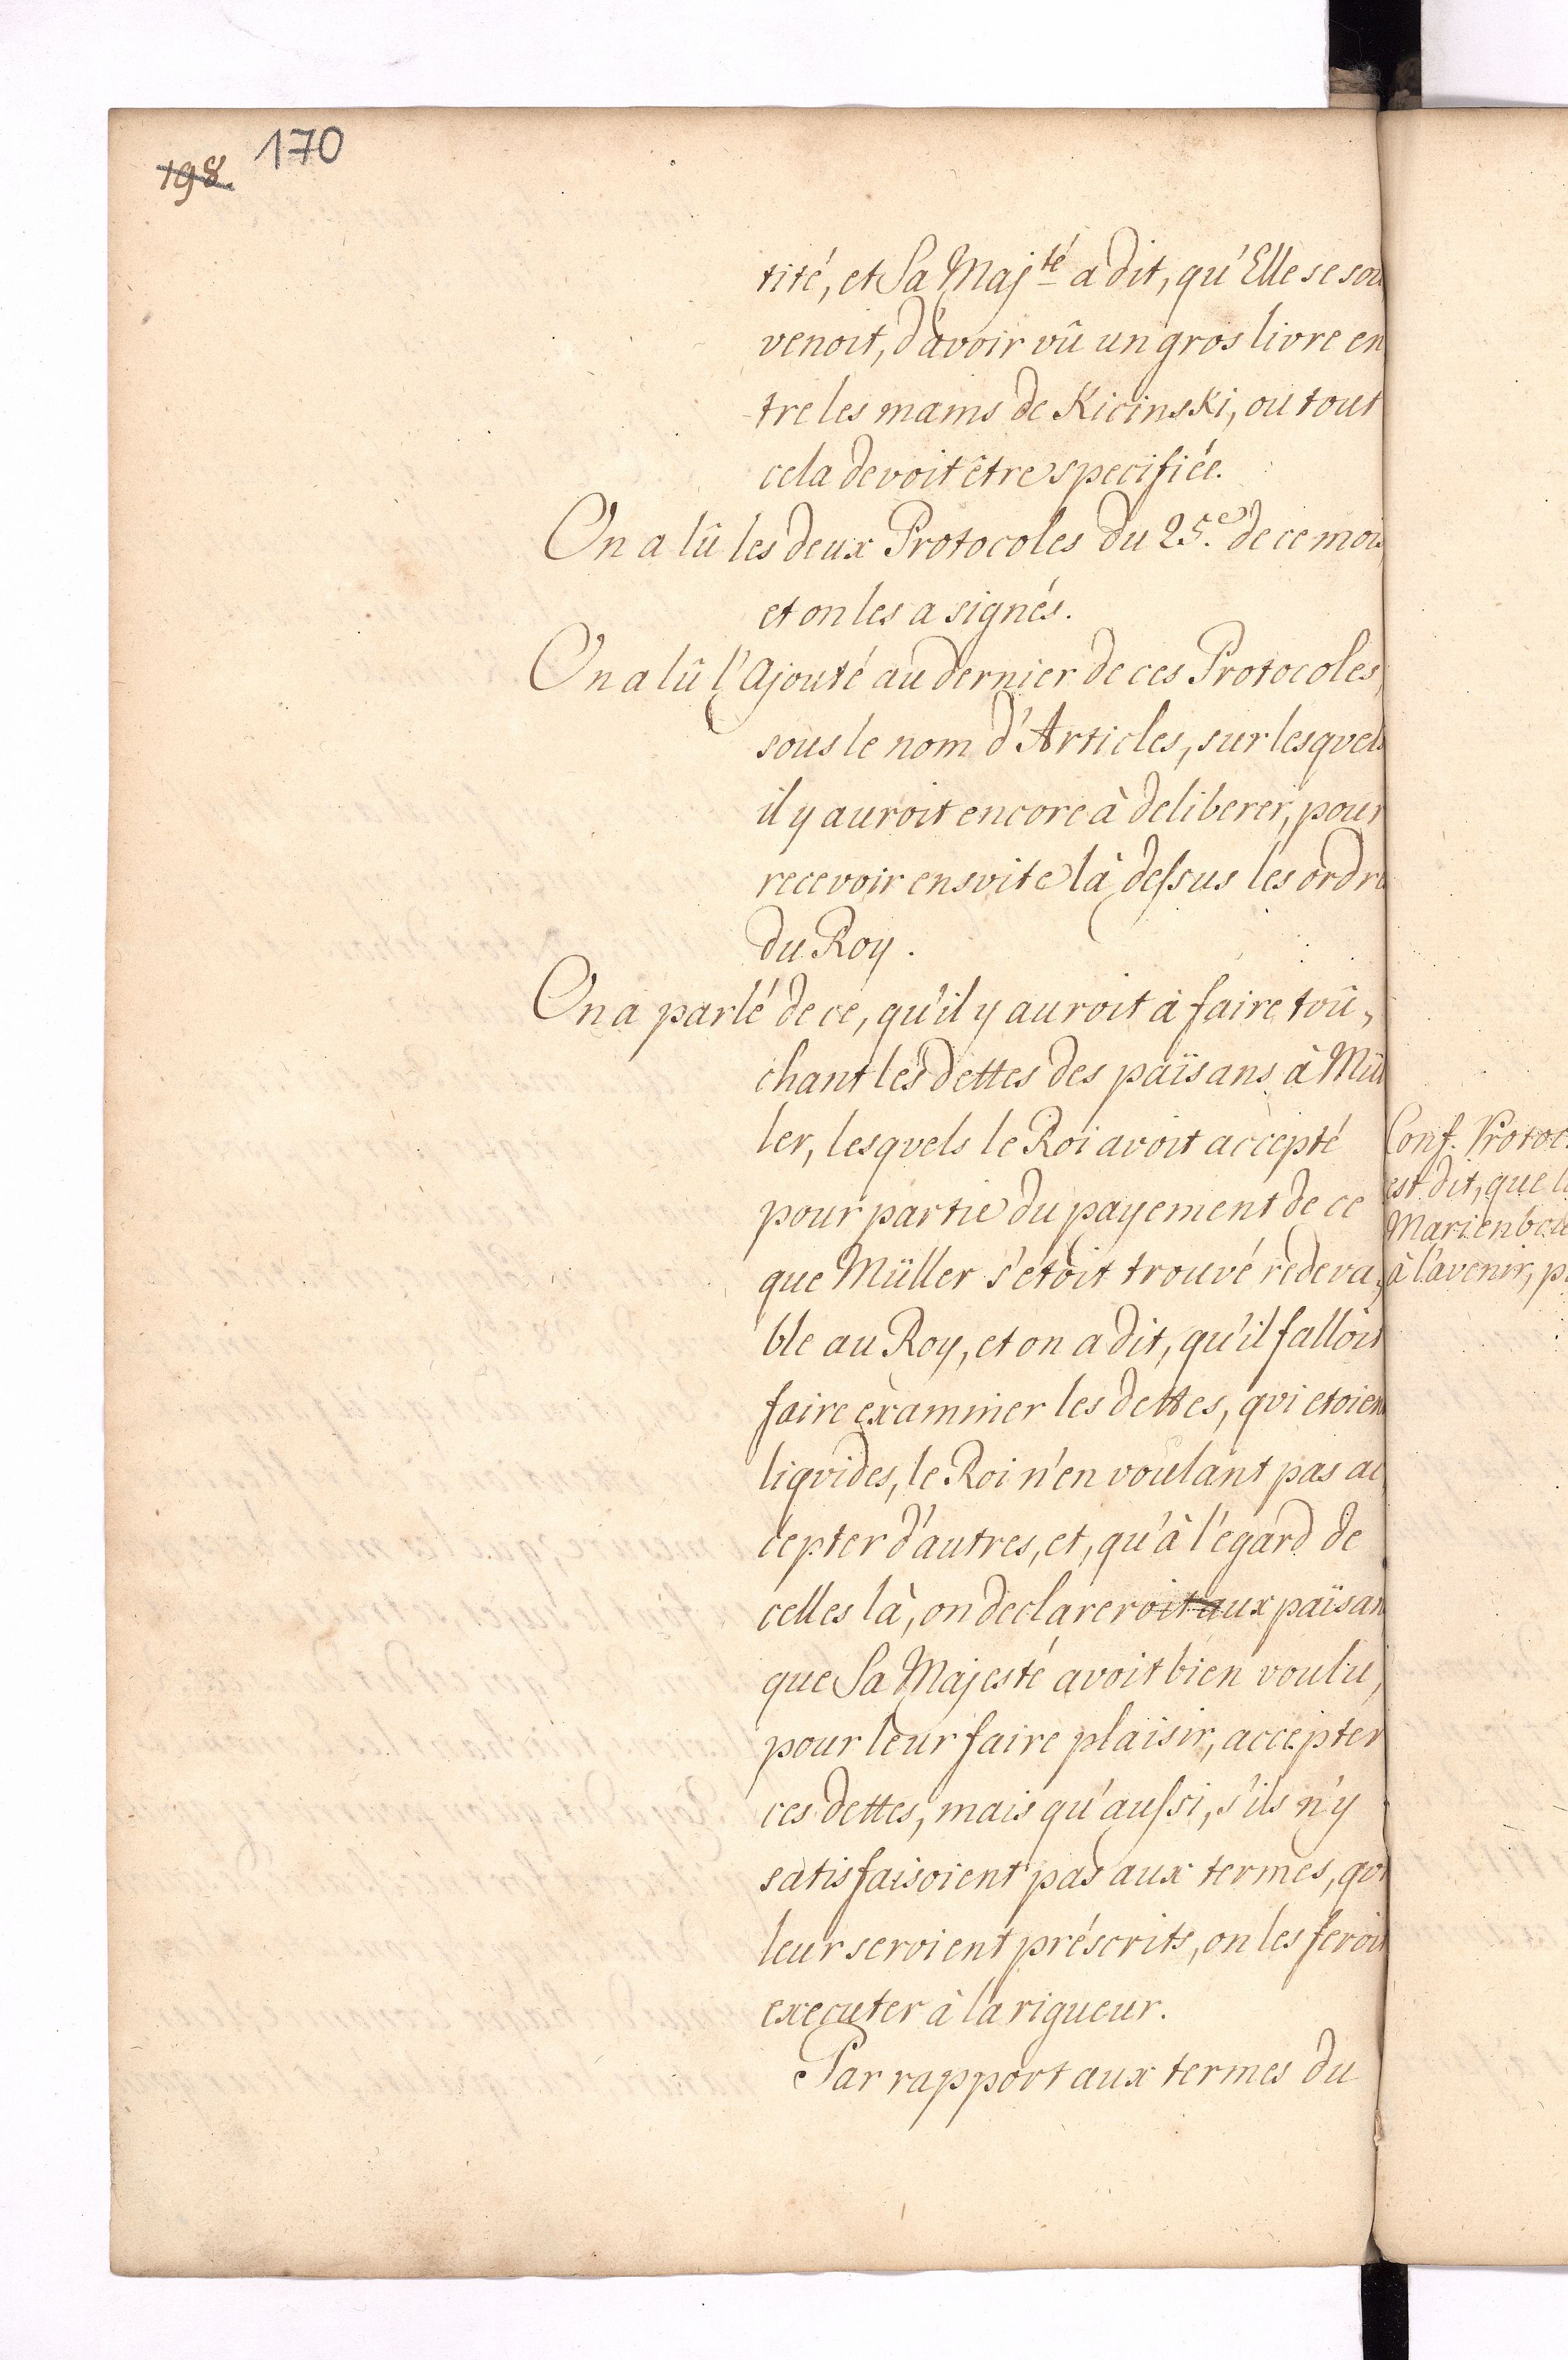 198. 170
tité, et Sa Maj.té a dit, qu'Elle se sou
venoit, d'avoir vû un gros livre en
tre les mains de Kicinski, où tout
cela devoit être specifiée.
On a lû les deux Protocoles du 25.e de ce mois
et on les a signés.
On a lû l'Ajouté au dernier de ces Protocoles,
sous le nom d'Articles, sur lesquels
il y auroit encore à deliberer, pour
recevoir ensvite là dessus les ordre
du Roy.
On a parlé de ce, qu'il y auroit à faire toû„
chant les dettes des païsans à Mül
ler, lesqvels le Roi avoit accepté
pour partie du payement de ce
que Müller s'étoit trouvé redeva„
ble au Roy, et on a dit, qu'il falloit
faire examiner les dettes, qvi etoien
liqvides, le Roi n'en voulant pas ac
cepter d'autres, et, qu'à l'egard de
celles là, on declareroit aux païsan
que Sa Majesté avoit bien voulu,
pour leur faire plaisir, accepter
ces dettes, mais qu'aussi, s'ils n'y
satisfaisoient pas aux termes, qvi
leur seroient préscrits, on les feroit
executer à la rigueur.
Par rapport aux termes du
Conf. Protoc
est dit, que l
Marienb
à l'avenir, p